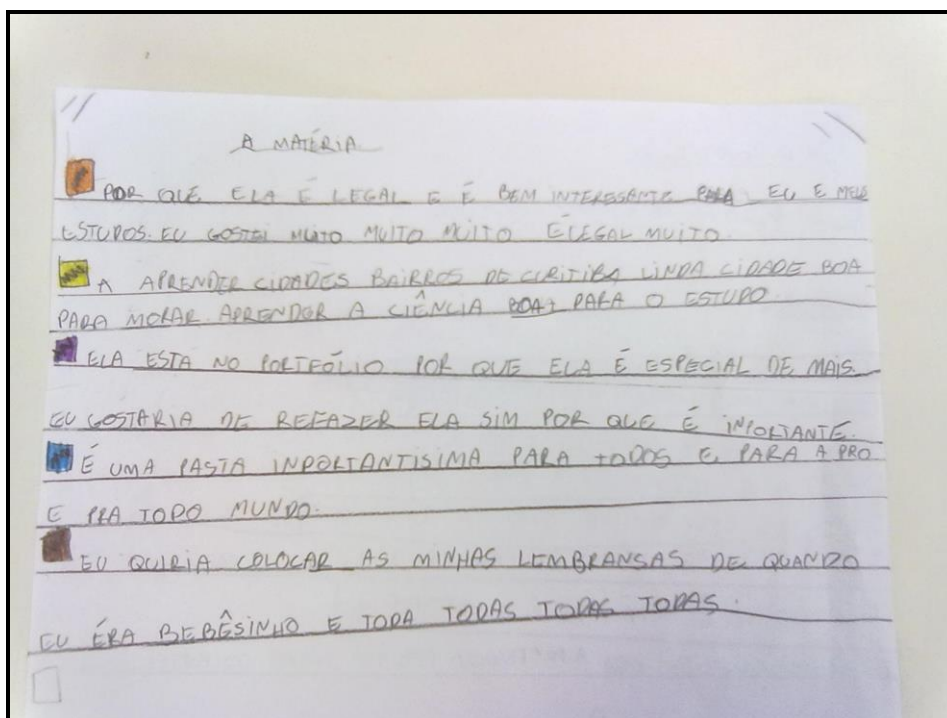 A MATÉRIA
POR QUE ELA É LEGAL E É BEM INTERESSANTE PARA EU E MEUS
ESTUDOS. EU GOSTEI MUITO MUITO MUITO É LEGAL MUITO
A APRENDER CIDADES BAIRROS DE CURITIBA, LINDA CIDADE BOA
PARA MORAR. APRENDER A CIÊNCIA BOA PARA O ESTUDO.
ELA ESTA NO PORTFÓLIO POR QUE ELA É ESPECIAL DE MAIS.
EU GOSTARIA DE REFAZER ELA SIM POR QUE É INPORTANTE.
É UMA PASTA INPORTANTISIMA PARA TODOS E PARA A PRO
E PRA TODO MUNDO.
EU QUIRIA COLOCAR AS MINHAS LEMBRANSAS DE QUANDO
EU ÉRA BEBÊSINHO E TODA TODAS TODAS TODAS.